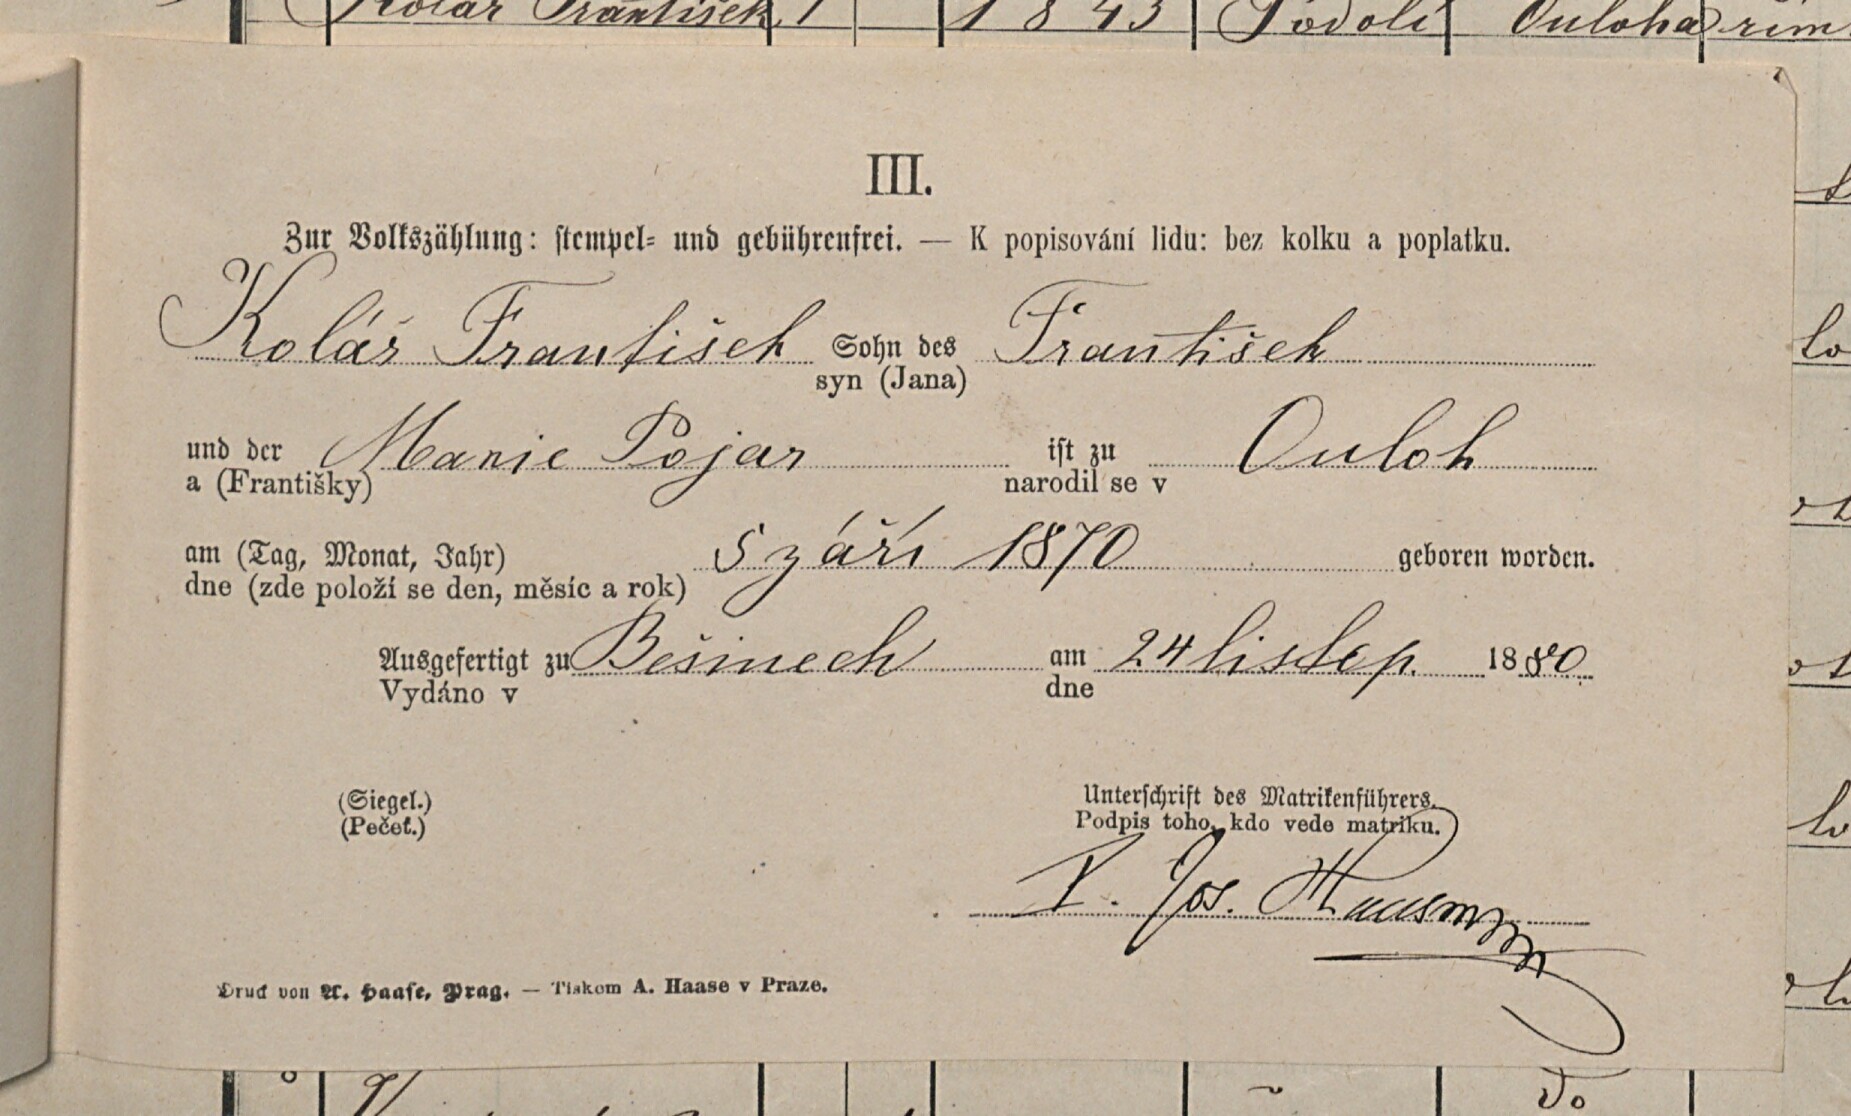 Kolář František 1 1843 Podolí Ouloha řím.
III.
Zur Volkszählung: stempel- und gebührenfrei. — K popisování lidu: bez kolku a poplatku.
Kolář František Sohn des František
syn (Jana)
und der Marie Pojar ist zu Ouloh
a (Františky) narodil se v
am (Tag, Monat, Jahr) 5 září 1870 geboren worden.
dne (zde položí se den, měsíc a rok)
Ausgefertigt zu Bešinech am 24 listop. 1880.
Vydáno v dne
(Siegel.) Unterschrift des Matrikenführers.
(Pečeť.) Podpis toho, kdo vede matriku.
P. Jos.
Druck von A. Haase, Prag. — Tiskem A. Haase v Praze.